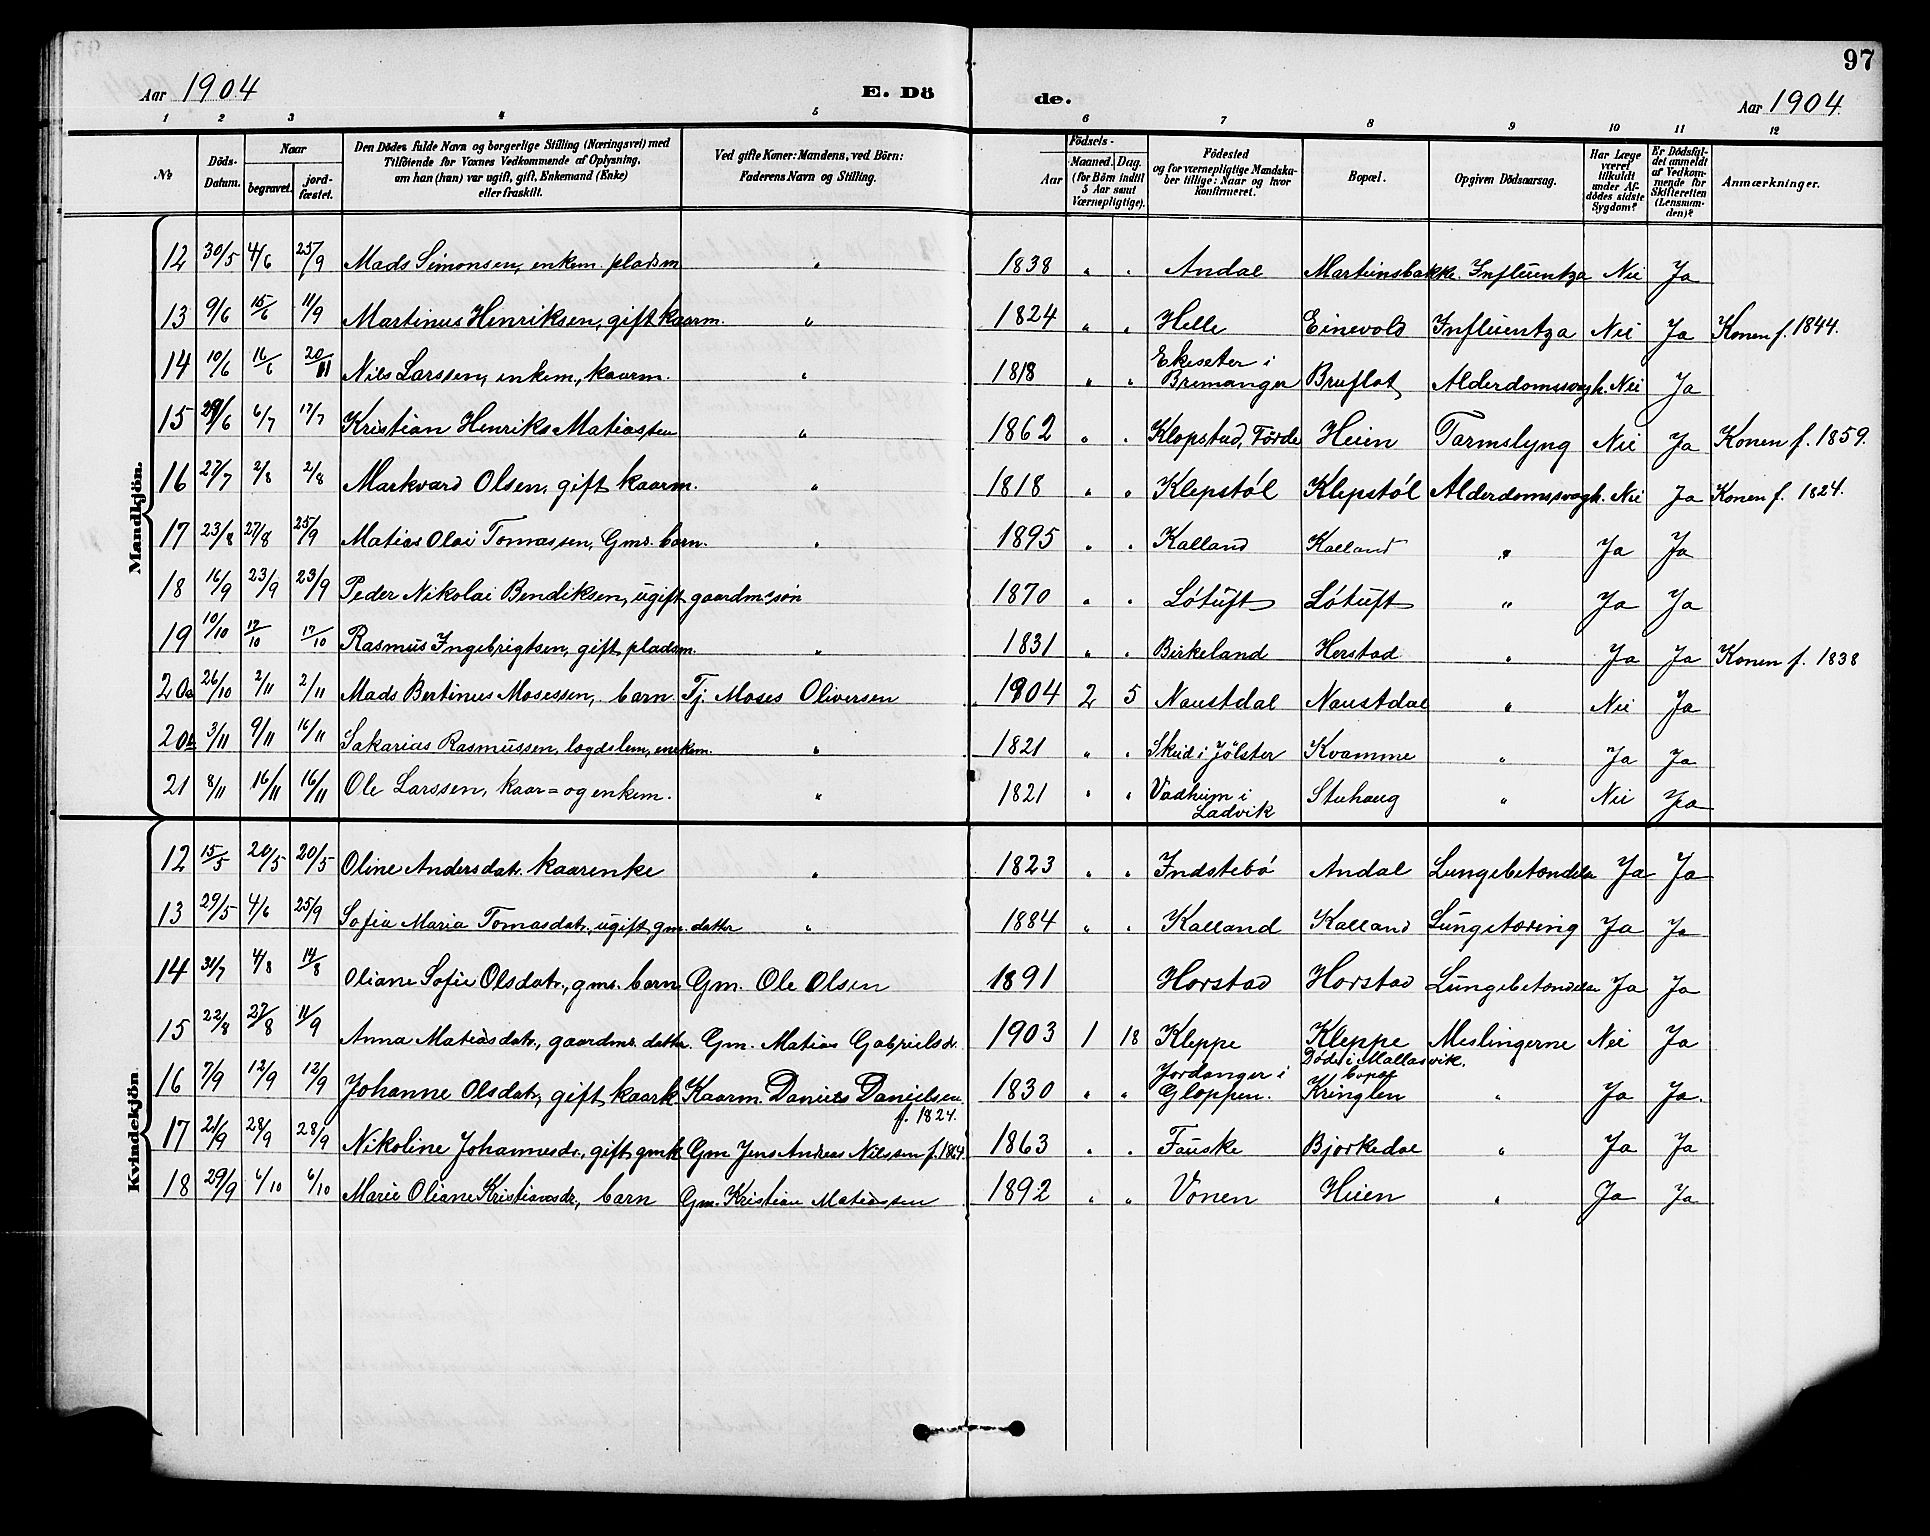 97
Aar 1904
E. Dö
de.
Aar 1904.
1 2 3 4 5 6 7 8 9 10 11 12
№
Döds-Datum.
Naar
begravet. jord-fæstet.
Den Dödes fulde Navn og borgerlige Stilling (Næringsvei) med
Tilföiende for Voxnes Vedkommende af Oplysning,
om han (hun) var ugift, gift, Enkemand (Enke)
eller fraskilt.
Ved gifte Koner: Mandens, ved Börn:
Faderens Navn og Stilling.
Födsels-
Aar Maaned. Dag.
(for Börn indtil
5 Aar samt
Værnepligtige).
Födested
og for værnepligtige Mandska-
ber tillige: Naar og hvor
konfirmeret.
Bopæl.
Opgiven Dödsaarsag.
Har Læge
været
tilkaldt
under Af-
dödes sidste
Sygdom?
Er Dödsfal-
det anmeldt
af Vedkom-
mende for
Skifteretten
(Lensman-
den)?
Anmærkninger.
Mandkjön.
12 30/5 4/6 25/9 Mads Simonsen, enkem. pladsm. " 1838 " " Andal Martinsbakke. Influentza Nei Ja
13 9/6 15/6 11/9 Martinus Henriksen, gift kaarm. " 1824 " " Helle Einevold Influentza Nei Ja Konen f. 1844.
14 10/6 16/6 20/11 Nils Larssen, enkem., kaarm. " 1818 " " Ekeseter i Bremanger Bruflot Alderdomssvagh. Nei Ja
15 29/6 6/7 17/7 Kristian Henriks Matiassen " 1862 " " Klopstad, Förde Heien Tarmslyng Nei Ja Konen f. 1859.
16 27/7 2/8 2/8 Markvard Olsen, gift kaarm. " 1818 " " Klepstøl Klepstøl Alderdomssvagh. Nei Ja Konen f. 1824.
17 23/8 27/8 25/9 Matias Olai Tomassen, Gms. barn. " 1895 " " Kalland Kalland " Ja Ja
18 16/9 23/9 23/9 Peder Nikolai Bendiksen, ugift gaardm. søn 1870 " " Løtuft Løtuft " Ja Ja
19 10/10 17/10 17/10 Rasmus Ingebrigtsen, gift pladsm. " 1831 " " Birkeland Horstad " Ja Ja Konen f. 1838
20a 26/10 2/11 2/11 Mads Bertinus Mosessen, barn Tj. Moses Oliversen 1904 2 5 Naustdal Naustdal " Nei Ja
20b 3/11 9/11 16/11 Sakarias Rasmussen, lægdslem, enkem. " 1821 " " Skeid i Jølster Kvamme " Ja Ja
21 8/11 16/11 16/11 Ole Larssen, kaar= og enkem. " 1821 " " Vadheim i Ladvik Stuhaug " Nei Ja
Kvindekjön
12 15/5 20/5 20/5 Oline Andersdatr. kaarenke " 1823 " " Indstebø Andal Lungebetændelse Ja Ja
13 29/5 4/6 25/9 Sofia Maria Tomasdatr., ugift gm. datter " 1884 " " Kalland Kalland Lungetæring Ja Ja
14 31/7 4/8 14/8 Oliane Sofie Olsdatr., gms. barn Gm. Ole Olsen 1891 Horstad Horstad Lungebetændelse Ja Ja
15 22/8 27/8 11/9 Anna Matiasdatr., gaardms. datter. Gm. Matias Gabrielsen. 1903 1 18 Kleppe Kleppe Meslingerne Nei Ja
16 7/9 12/9 12/9 Johanne Olsdatr., gift kaark. Kaarm. Daniels Danielsen f. 1824. 1830 " " Jordanger i Gloppen. Døde i Mallasvik. bopæl Kringlen " Ja Ja.
17 21/9 28/9 28/9 Nikoline Johannesdr., gift gmk. Gm Jens Andreas Nilssen f. 1864 1863 " " Fauske Bjorkedal " Ja Ja
18 29/9 6/10 6/10 Marie Oliane Kristiansdr., barn Gm. Kristian Matiassen 1892 " " Vonen Heien " Ja Ja